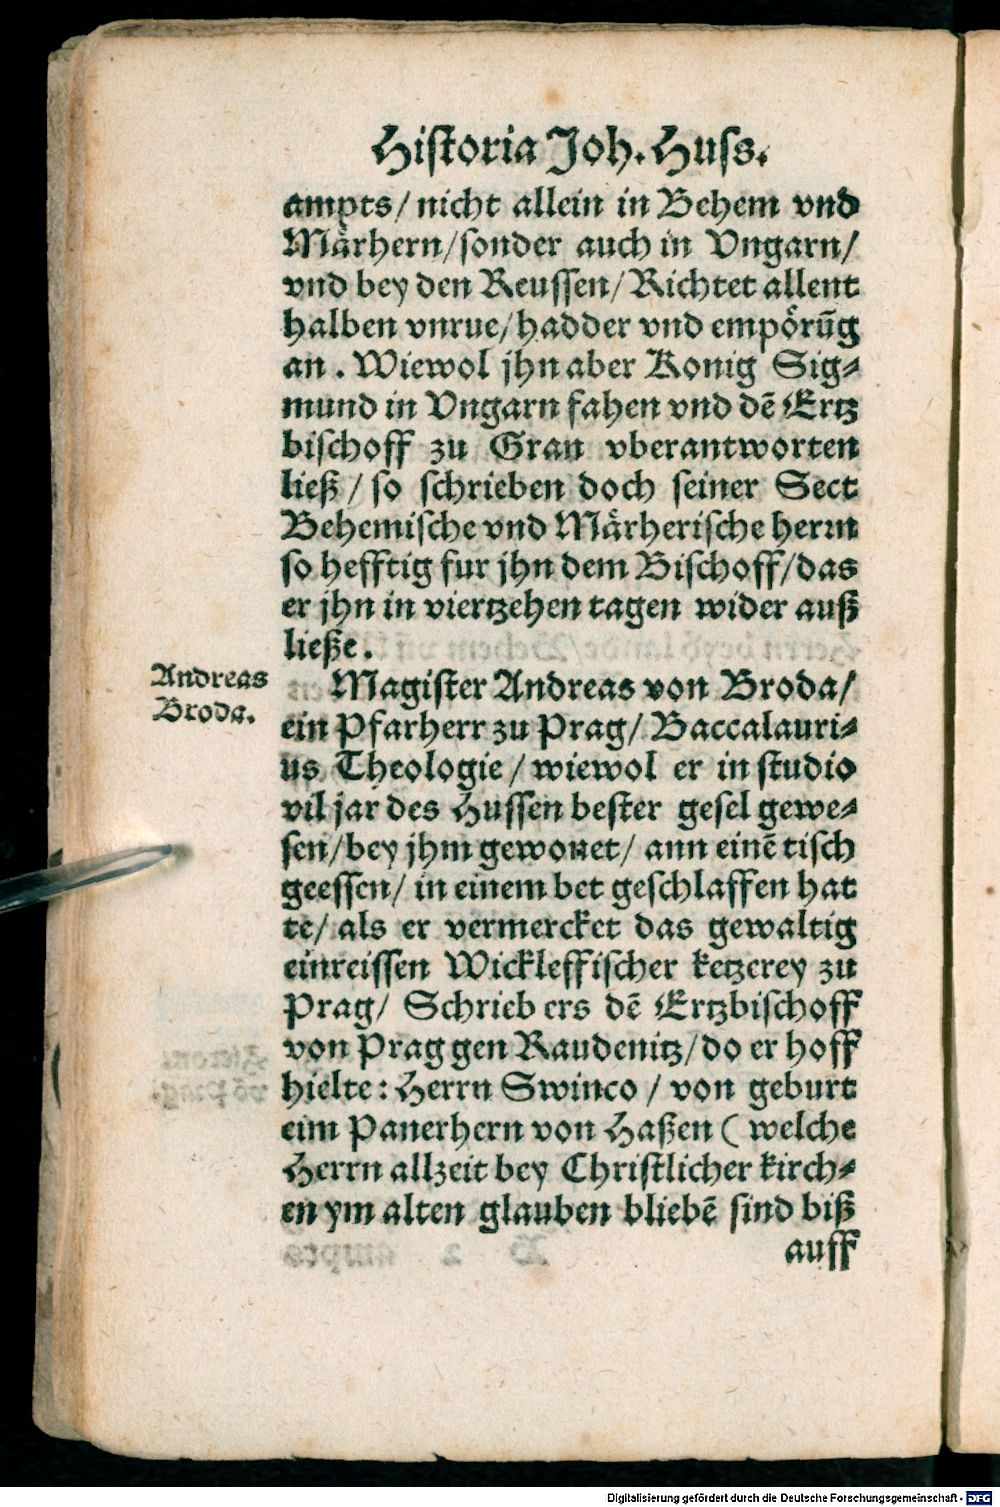 Historia Joh. Huss.
ampts / nicht allein in Behem vnd
Maͤrhern / sonder auch in Vngarn /
vnd bey den Reussen / Richtet allent
halben vnrue / hadder vnd empoͤrũg
an. Wiewol jhn aber Konig Sig⸗
mund in Vngarn fahen vnd dē Ertz
bischoff zu Gran vberantworten
ließ / so schrieben doch seiner Sect
Behemische vnd Maͤrherische herrn
so hefftig fur jhn dem Bischoff / das
er jhn in viertzehen tagen wider auß
ließe.
Andreas
Broda.
Magister Andreas von Broda /
ein Pfarherr zu Prag / Baccalauri⸗
us Theologie / wiewol er in studio
vil jar des Hussen bester gesel gewe⸗
sen / bey jhm gewonet / ann einē tisch
geessen / in einem bet geschlaffen hat
te / als er vermercket das gewaltig
einreissen Wickleffischer ketzerey zu
Prag / Schrieb ers dē Ertzbischoff
von Prag gen Raudenitz / do er hoff
hielte: Herrn Swinco / von geburt
eim Panerhern von Haßen ( welche
Herrn allzeit bey Christlicher kirch⸗
en ym alten glauben bliebē sind biß
auff
Digitalisierung gefördert durch die Deutsche Forschungsgemeinschaft - DFG